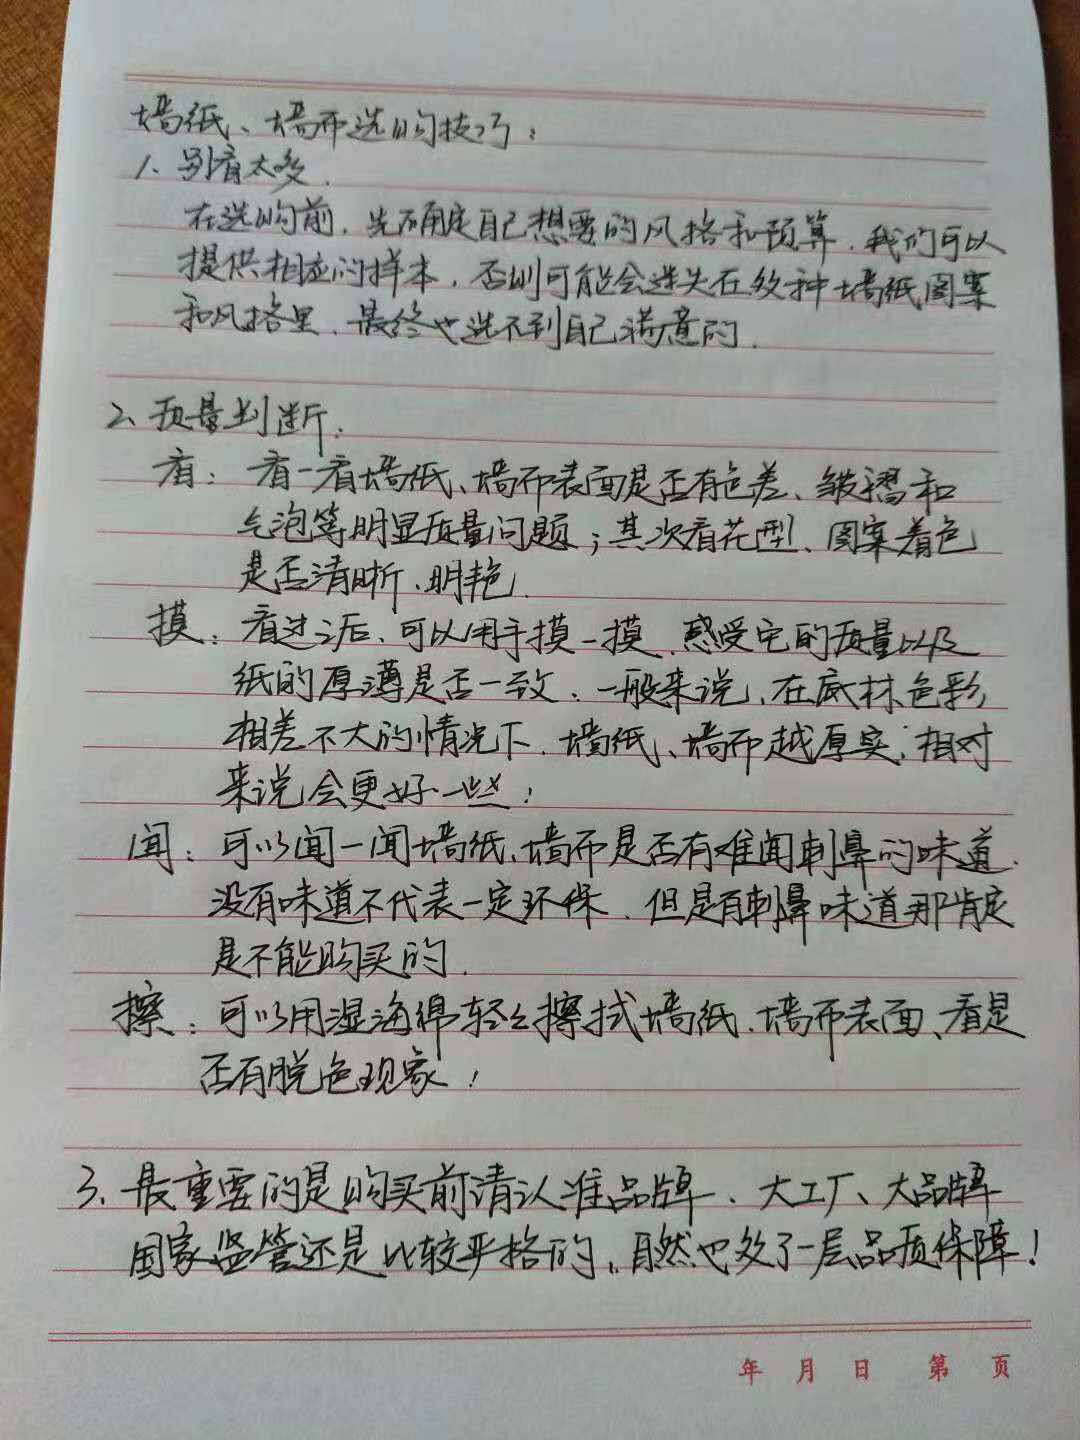 墙纸、墙布选购技巧：
1、别看太多.
在选购前，先确定自己想要的风格和预算，我们可以
提供相应的样本，否则可能会迷失在多种墙纸图案
和风格里，最终也选不到自己满意的.
2、质量判断：
看：看一看墙纸、墙布表面是否有色差、皱褶和
气泡等明显质量问题；其次看花型、图案着色
是否清晰、明艳.
摸：看过之后、可以用手摸一摸，感受它的质量以及
纸的厚薄是否一致.一般来说，在底材色彩
相差不大的情况下，墙纸、墙布越厚实，相对
来说会更好一些！
闻：可以闻一闻墙纸、墙布是否有难闻刺鼻的味道.
没有味道不代表一定环保，但是有刺鼻味道那肯定
是不能购买的.
擦：可以用湿海绵轻轻擦拭墙纸、墙布表面、看是
否有脱色现象！
3、最重要的是购买前请认准品牌、大工厂、大品牌
国家监管还是比较严格的，自然也多了一层品质保障！
年 月 日 第 页